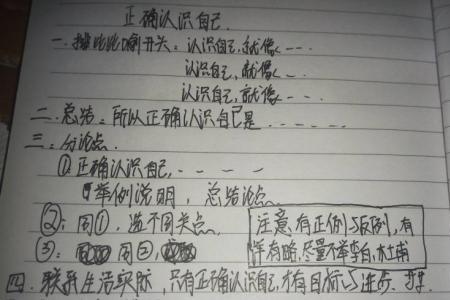 正确认识自己.
一.排比比喻开头:认识自己,就像---.
认识自己,就像---.
认识自己,就像---.
二.总结:所以正确认识自己是------.
三.分论点.
①正确认识自己,----
举例说明,总结论点.
②:同①,选不同关点.
③:同②,
注意有正例与反例,有
详有略,尽量不举李白,杜甫
四.联系生活实际,只有正确认识自己,才有目标与进步.